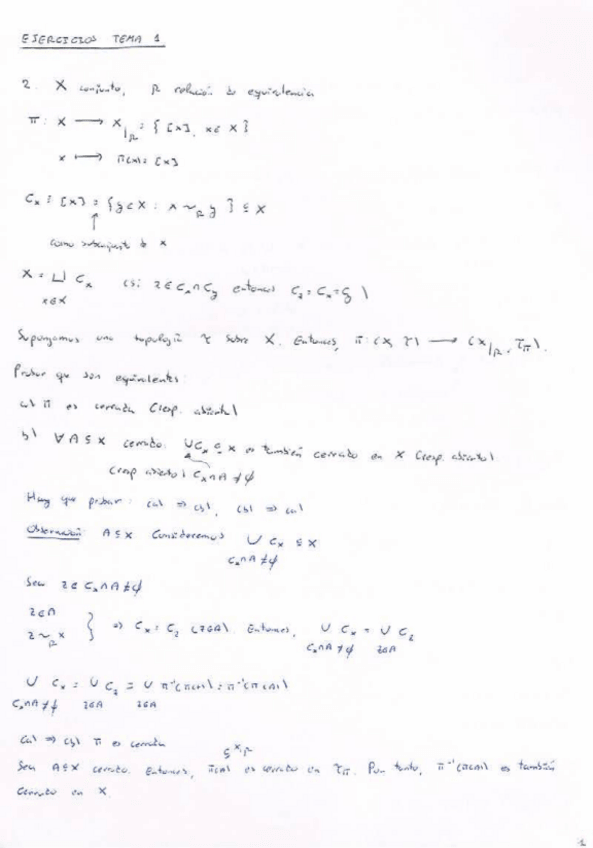 EJERCICIOS TEMA 1
2. X conjunto, R relación de equivalencia
π: X ⟶ X|R = { [x], x ∈ X }
x ⟼ π(x) = [x]
Cx = [x] = { y ∈ X : x ~R y } ⊆ X
↑
como subconjunto de X
X = ⊔ Cx (si z ∈ Cx ∩ Cy entonces Cz = Cx = Cy)
x∈X
Supongamos una topología τ sobre X. Entonces, π: (X, τ) ⟶ (X|R, τπ).
Probar que son equivalentes:
a) π es cerrada (resp. abierta)
b) ∀ A ⊆ X cerrado ∪ Cx ⊆ X es también cerrado en X (resp. abierto)
(resp abierto) Cx ∩ A ≠ ∅
Hay que probar: (a) ⇒ (b), (b) ⇒ (a)
Observación: A ⊆ X Consideremos ∪ Cx ⊆ X
Cx ∩ A ≠ ∅
Sea z ∈ Cx ∩ A ≠ ∅
z ∈ A
z ~R x } ⇒ Cx = Cz (z ∈ A). Entonces, ∪ Cx = ∪ Cz
Cx ∩ A ≠ ∅ z∈A
∪ Cx = ∪ Cz = ∪ π⁻¹(π(z)) = π⁻¹(π(A))
Cx ∩ A ≠ ∅ z∈A z∈A
(a) ⇒ (b) π es cerrada
⊆ X|R
Sea A ⊆ X cerrado. Entonces, π(A) es cerrado en τπ. Por tanto, π⁻¹(π(A)) es también
cerrado en X
1